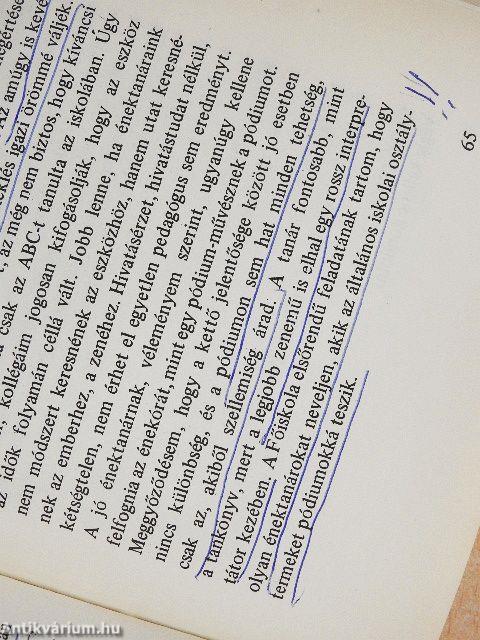 megértése
Az amúgy is kevé-
éneklés igazi örömmé váljék.
, az még nem biztos, hogy kíváncsi
csak az ABC-t tanulta az iskolában. Úgy
kollégáim jogosan kifogásolják, hogy az eszköz
az idők folyamán céllá vált. Jobb lenne, ha énektanáraink
nem módszert keresnének az eszközhöz, hanem utat keresné-
nek az emberhez, a zenéhez. Hivatásérzet, hivatástudat nélkül,
kétségtelen, nem érhet el egyetlen pedagógus sem eredményt.
A jó énektanárnak, véleményem szerint, ugyanúgy kellene
felfognia az énekórát, mint egy pódium-művésznek a pódiumot.
Meggyőződésem, hogy a kettő jelentősége között jó esetben
nincs különbség, és a pódiumon sem hat minden tehetség,
csak az, akiből szellemiség árad. A tanár fontosabb, mint
a tankönyv, mert a legjobb zenemű is elhal egy rossz interpre-
tátor kezében. A Főiskola elsőrendű feladatának tartom, hogy
olyan énektanárokat neveljen, akik az általános iskolai osztály-
termeket pódiumokká teszik.
!!
65
Antikvárium.hu